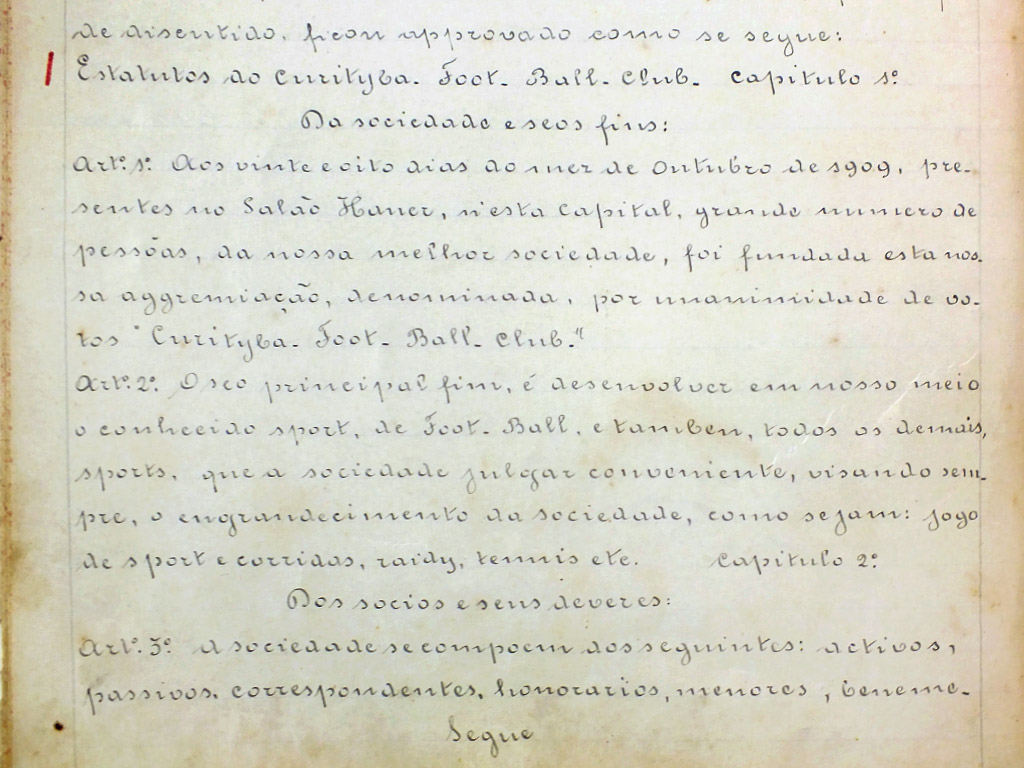 de discutido, ficou approvado como se segue:
Estatutos do Curityba- Foot- Ball- Club- Capitulo 1º
Da sociedade e seos fins:
Artº. 1º. Aos vinte e oito dias do mez de Outubro de 1909, pre-
sentes no Salão Hauer, n'esta Capital, grande numero de
pessôas, da nossa melhor sociedade, foi fundada esta nos-
sa aggremiação, denominada, por unanimidade de vo-
tos "Curityba- Foot- Ball- Club-"
Artº. 2º. O seo principal fim, é desenvolver em nosso meio
o conhecido sport, de Foot- Ball, e tamben, todos os demais,
sports, que a sociedade julgar conveniente, visando sem-
pre, o engrandecimento da sociedade, como sejam: jogo
de sport e corridas, raidy, tennis etc. Capitulo 2º
Dos socios e seus deveres:
Artº. 3º A sociedade se compoem dos seguintes: activos,
passivos, correspondentes, honorarios, menores, beneme-
Segue